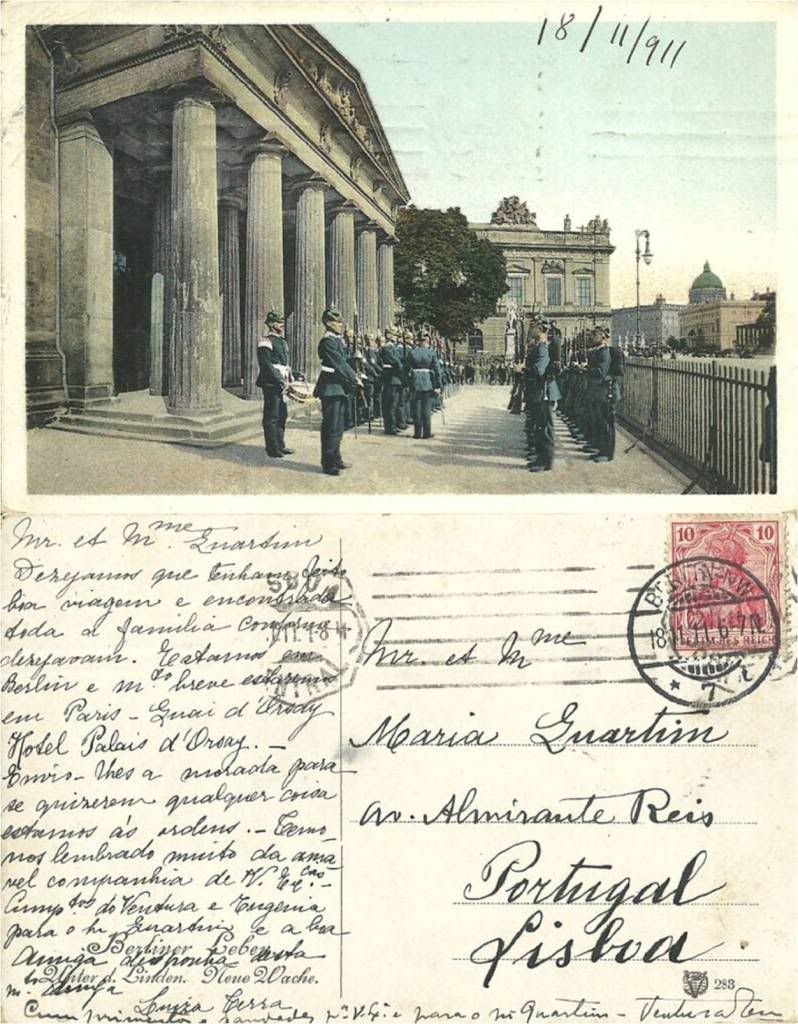 18/11/911
Mr. et Mme Quartim
Dezejamos que tenham feito
boa viagem e encontrado
toda a familia conforme
dezejavam. Estamos em
Berlin e mto breve estaremos
em Paris - Quai d'Orsay
Hotel Palais d'Orsay. -
Envio-lhes a morada para
se quizerem qualquer coisa
estamos ás ordens. - Temo-
nos lembrado muito da ama-
vel companhia de V. Excias. -
Cumptos do Ventura e Eugenia
para o Sr Quartim e a boa
Amiga disponha desta
mto amiga
Luiza Terra
Cumprimentos e saudades pa V. Exa e para o Sr Quartim - Ventura Terra
Berliner Leben
Unter d. Linden. Neue Wache.
10 10
DEUTSCHES REICH
BERLIN NW
18.11.11.6-7N
* 7
Mr. et Mme
Maria Quartim
Av. Almirante Reis
Portugal
Lisboa
283